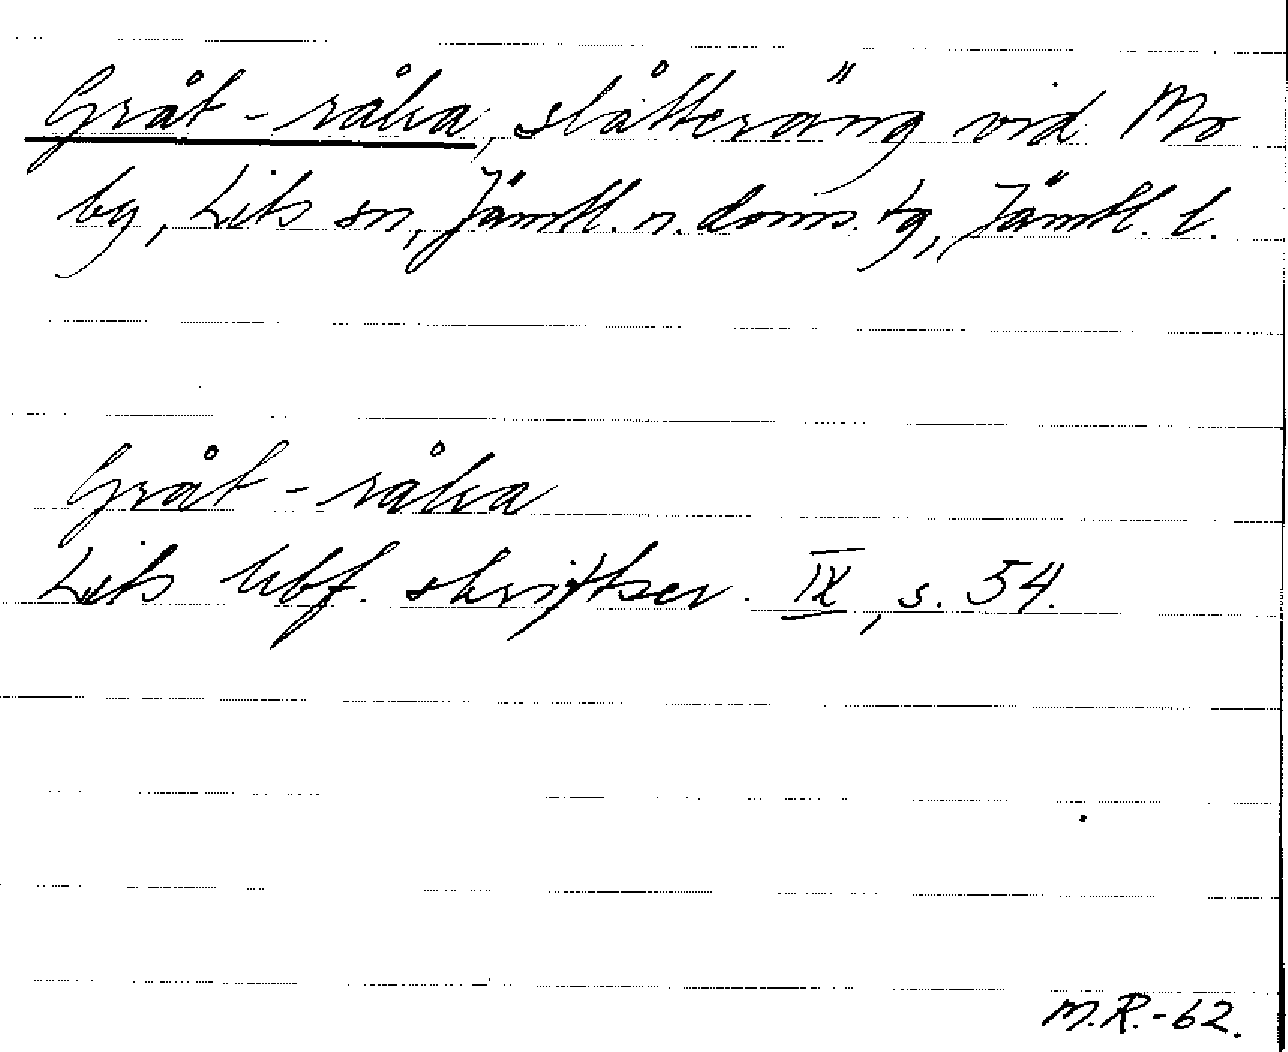 Gråt-råka, slåtteräng vid Mo
by, Lits sn, Jämtl. n. doms. tg, Jämtl. l.
Gråt-råka
Lits hbf. skriftser. IX, s. 54.
M.R.-62.